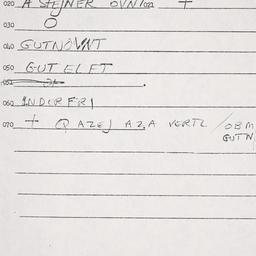 020 A STEJNER OVN/021 +
030 O
040 GUTNOVNT
050 GUT ELFT
051
060 INDCRFRI
070 + Q AZEJ AZA VERTL / OBM
GUTN